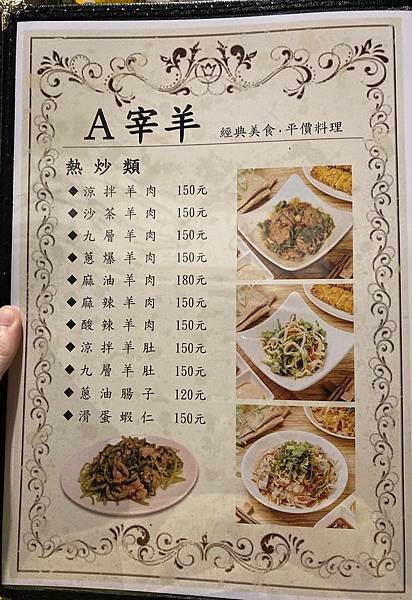 A宰羊 經典美食.平價料理
熱炒類
◆涼拌羊肉 150元
◆沙茶羊肉 150元
◆九層羊肉 150元
◆蔥爆羊肉 150元
◆麻油羊肉 180元
◆麻辣羊肉 150元
◆酸辣羊肉 150元
◆涼拌羊肚 150元
◆九層羊肚 150元
◆蔥油腸子 120元
◆滑蛋蝦仁 150元